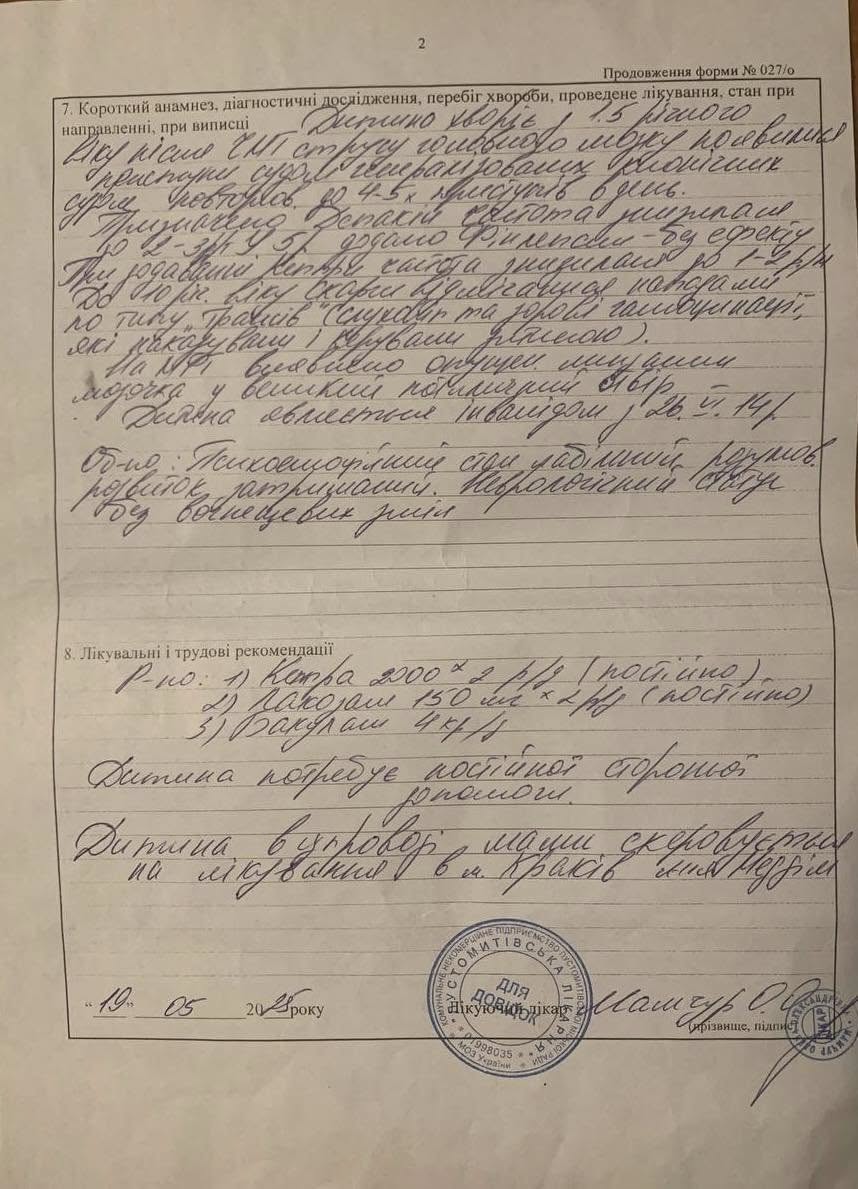 2
Продовження форми № 027/о
7. Короткий анамнез, діагностичні дослідження, перебіг хвороби, проведене лікування, стан при
направленні, при виписці Дитина хворіє з 1.5 річного
віку після ЧМТ струсу головного мозку появилися
приступи судом генералізованих клонічних
судом повторюв. до 4-5х приступів в день.
Призначено Депакін частота знизилася
до 2-3р. У 5р. додано Фінлепсин - без ефекту
При додаванні Кеппри частота знизилася до 1-2 р/
До 10 річ. віку скарги відмічалися нападами
по типу "трансів" (слухові та зорові галюцинації,
які наказували і керували дитиною).
На МРТ виявлено опущен. мигдалин
мозочка у великий потиличний отвір
Дитина являється інвалідом з 26. VI. 14р.
Об-но: Психоемоційний стан лабільний, розумов.
розвиток затриманий. Неврологічний статус
без вогнещевих змін
8. Лікувальні і трудові рекомендації
Р-но: 1) Кепра 2000 х 2 р/д (постійно)
2) Лакозам 150 мг х 2 р/д (постійно)
3) 4 кр/д
Дитина потребує постійної сторонньої
допомоги.
Дитина в супроводі мами скеровується
на лікування в м. Краків
"19" 05 2025 року
Лікуючий лікар Мамчур О.О.
(прізвище, підпис)
КОМУНАЛЬНЕ НЕКОМЕРЦІЙНЕ ПІДПРИЄМСТВО ПУСТОМИТІВСЬКОЇ МІСЬКОЇ РАДИ
ПУСТОМИТІВСЬКА ЛІКАРНЯ
ДЛЯ
ДОВІДОК
* 01998035 *
МОЗ України
ЛІКАР